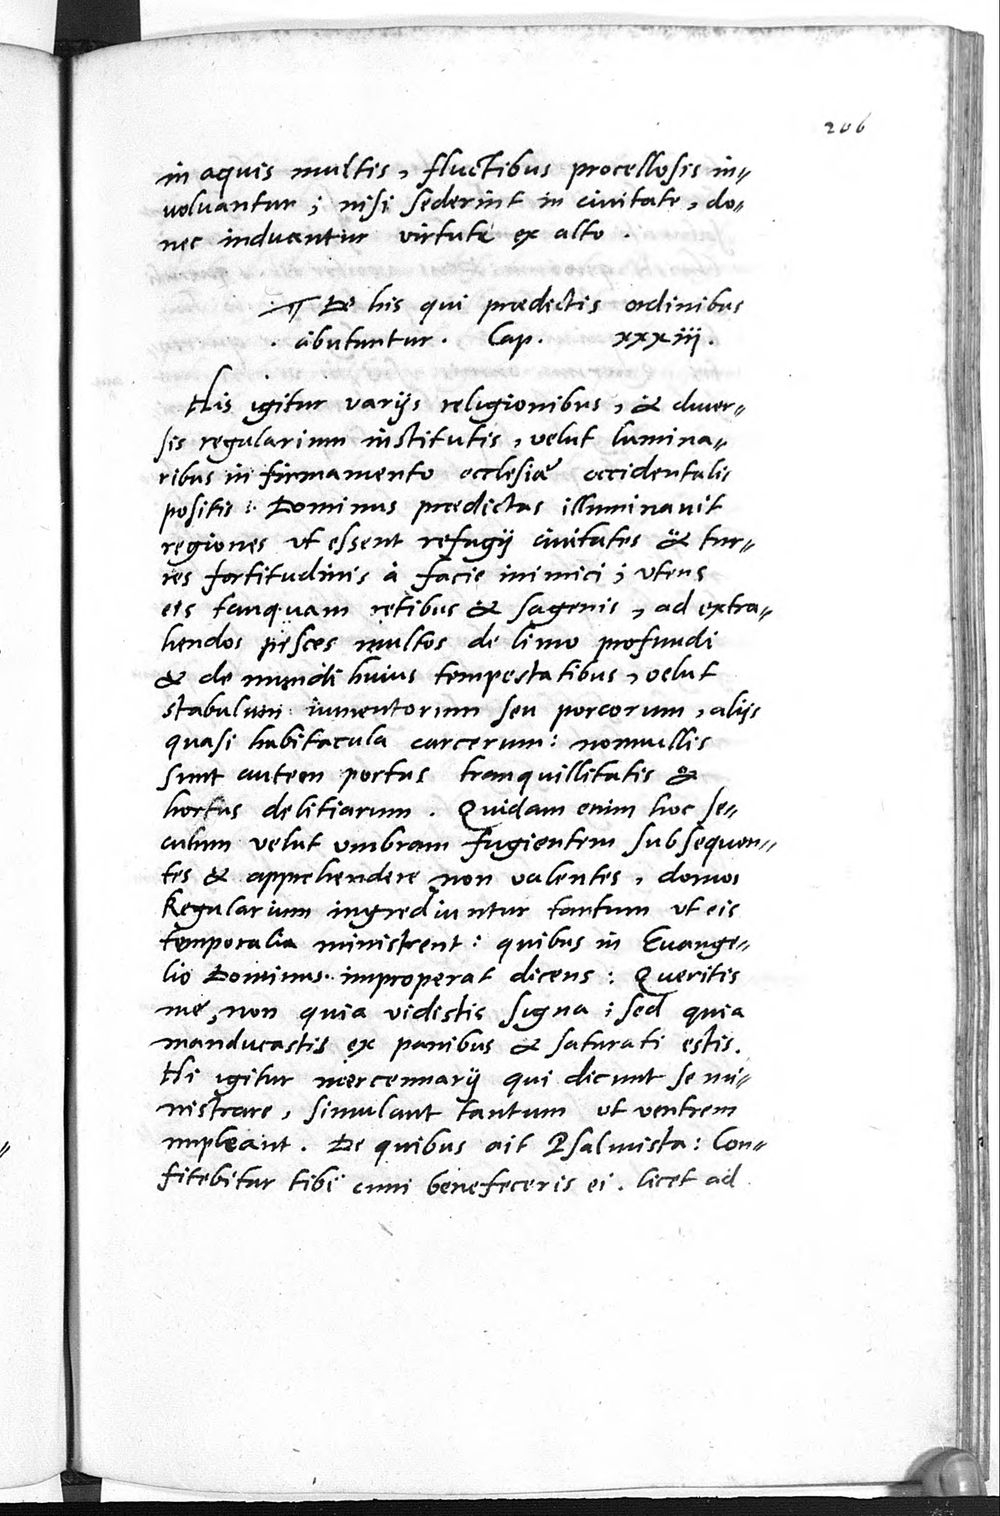 206
in aquis multis, fluctibus procellosis in„
voluantur; nisi sederint in ciuitate, do„
nec induantur virtute ex alto.
De his qui prædictis ordinibus
abutuntur. Cap. xxxiij.
His igitur varijs religionibus, & diuer„
sis regularium institutis, velut lumina„
ribus in firmamento ecclesiæ occidentalis
positis: Dominus prædictas illuminauit
regiones ut essent refugij ciuitates & tur„
res fortitudinis à facie inimici; vtens
eis tanquam retibus & sagenis, ad extra„
hendos pisces multos de limo profundi
& de mundi huius tempestatibus, velut
stabulum iumentorum seu porcorum, alijs
quasi habitacula carcerum: nonnullis
sunt autem portus tranquillitatis &
hortus delitiarum. Quidam enim hoc se„
culum velut umbram fugientem subsequen„
tes & apprehendere non valentes, domos
Regularium ingrediuntur tantum ut eis
temporalia ministrent: quibus in Euange„
lio Dominus improperat dicens: Queritis
me, non quia vidistis signa; sed quia
manducastis ex panibus & saturati estis.
Hi igitur mercennarij qui dicunt se mi„
nistrare, simulant tantum ut ventrem
impleant. De quibus ait Psalmista: Con„
fitebitur tibi cum benefeceris ei. licet ad